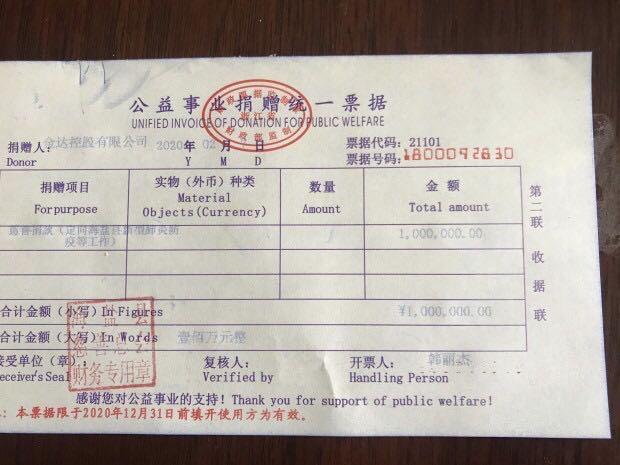 公益事业捐赠统一票据
UNIFIED INVOICE OF DONATION FOR PUBLIC WELFARE
捐赠人： 金达控股有限公司 2020 年 02 月 日 票据代码：21101
Donor Y M D 票据号码：1800092830
捐赠项目 实物（外币）种类 数量 金额
For purpose Material Objects(Currency) Amount Total amount
慈善捐款（定向海盐县新型肺炎防疫等工作） 1 1,000,000.00
合计金额（小写）In Figures ¥1,000,000.00
合计金额（大写）In Words 壹佰万元整
接受单位（章）： 复核人： 开票人： 韩丽杰
Receiver's Seal Verified by Handling Person
感谢您对公益事业的支持！Thank you for support of public welfare!
：本票据限于2020年12月31日前填开使用方为有效。
第二联 收据联
浙江省
财政部监制
海盐县
慈善总会
财务专用章